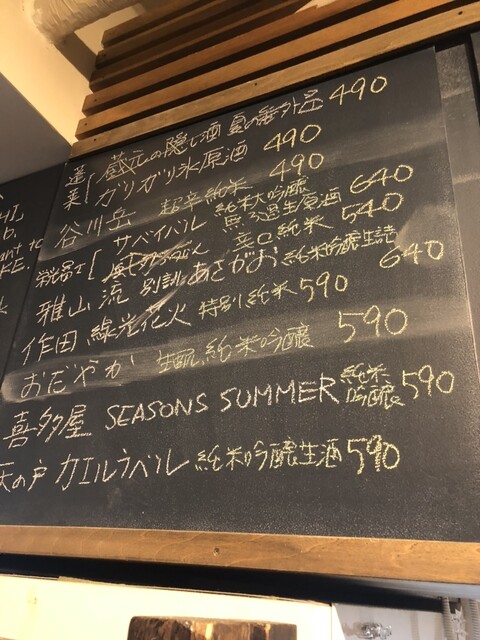 蓬莱 蔵元の隠し酒 夏の番外品 490
ガリガリ氷原酒 490
谷川岳 超辛純米 490
サバイバル 純米大吟醸 無ろ過生原酒 640
辛口純米 540
雅山流 別誂あさがお 純米吟醸生詰 640
作田 線光花火 特別純米 590
おだやか 純米吟醸 590
喜多屋 SEASONS SUMMER 純米吟醸 590
天の戸 カエルラベル 純米吟醸生酒 590